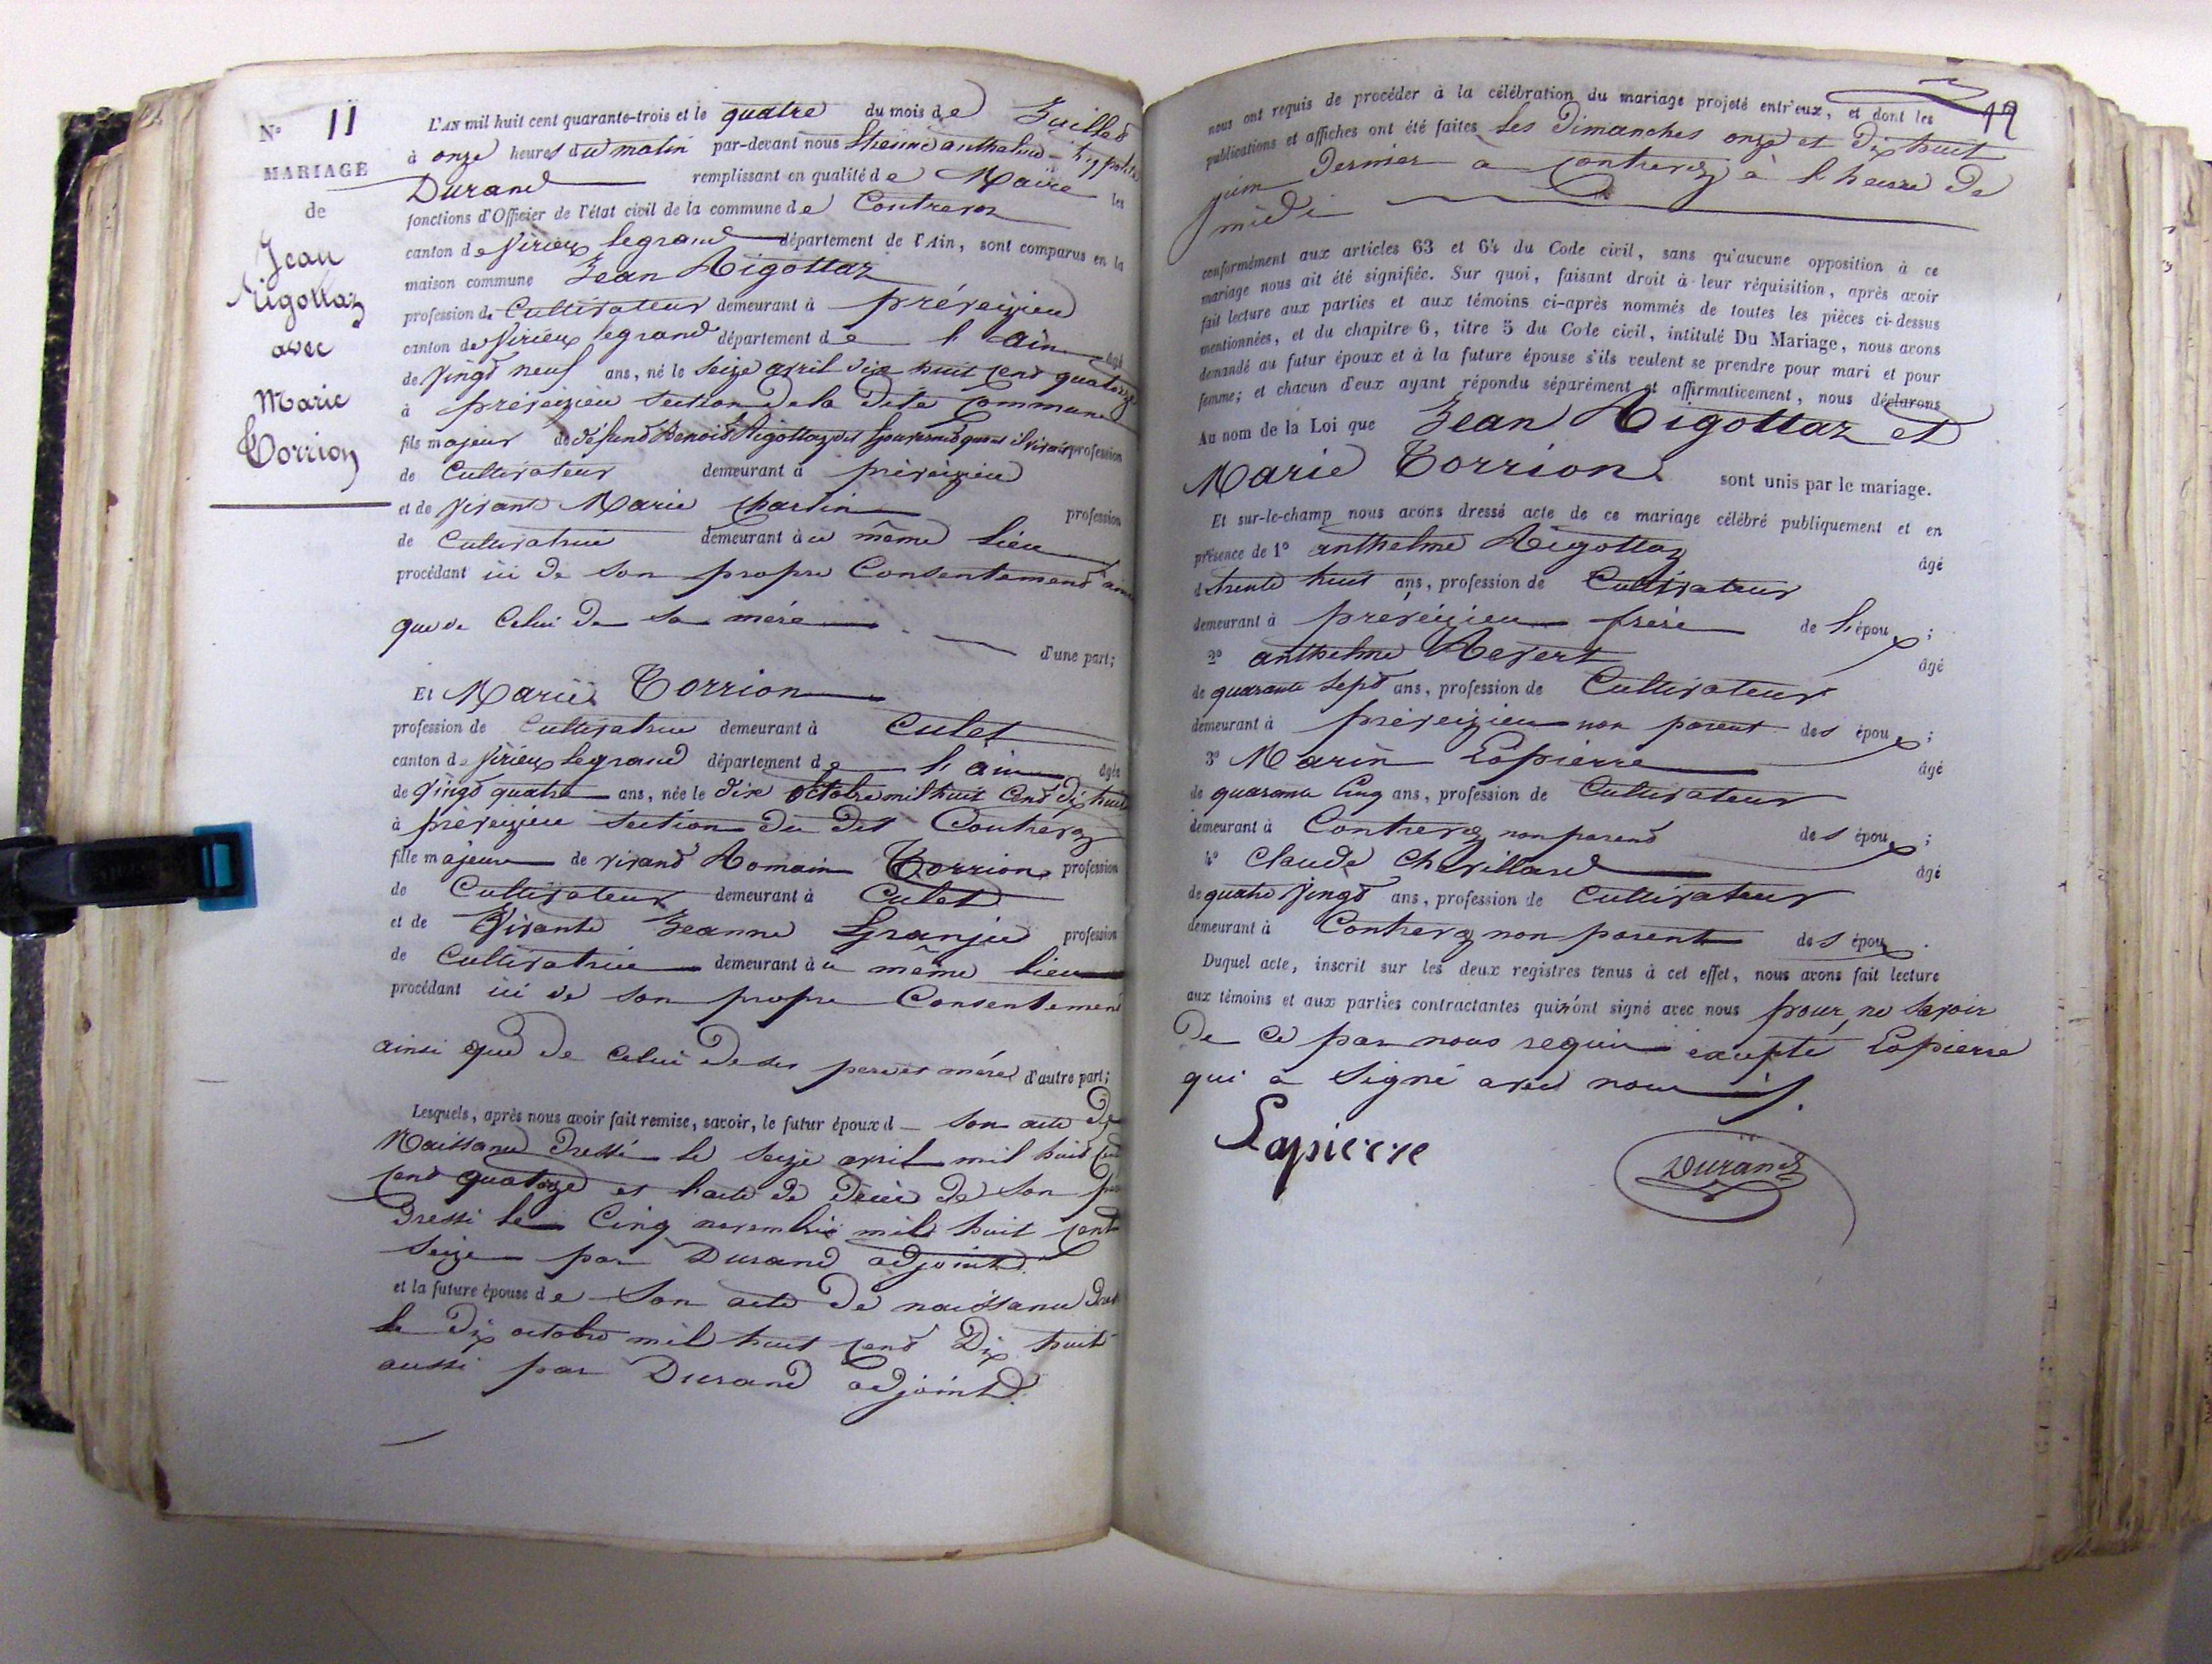 N° 11
MARIAGE
de
Jean
Rigottaz
avec
Marie
Corrion
L'AN mil huit cent quarante-trois et le quatre du mois de Juillet
à onze heures du matin par-devant nous Etienne anthelme hyppolite
Durand remplissant en qualité de Maire les
fonctions d'Officier de l'état civil de la commune de Contrevoz
canton de Virieux legrand département de l'Ain, sont comparus en la
maison commune Jean Rigottaz
profession de Cultivateur demeurant à préveizieu
canton de Virieux legrand département de l'ain âgé
de vingt neuf ans, né le seize avril dix huit cent quatorze
à préveizieu section de la dite commune
fils majeur de défunt Benoit Rigottaz profession
de Cultivateur demeurant à préveizieu
et de vivante Marie charlin profession
de Cultivatrice demeurant à u même lieu
procédant ici de son propre Consentement ainsi
que de Celui de sa mère
d'une part;
Et Marie Corrion
profession de Cultivatrice demeurant à Culet
canton de Virieux legrand département de l'ain âgée
de vingt quatre ans, née le dix octobre mil huit cent dix huit
à préveizieu section du dit Contrevoz
fille majeure de vivant Romain Corrion profession
de Cultivateur demeurant à Culet
et de Vivante Jeanne Granjié profession
de Cultivatrice demeurant à u même lieu
procédant ici de son propre Consentement
ainsi que de celui de ses pere et mére d'autre part;
Lesquels, après nous avoir fait remise, savoir, le futur époux d son acte de
Naissance dressé le seize avril mil huit cent
cent quatorze et l'acte de décès de son père
dressé le Cinq novembre mil huit cent
seize par Durand adjoint
et la future épouse de son acte de naissance
le dix octobre mil huit cent dix huit
aussi par Durand adjoint
nous ont requis de procéder à la célébration du mariage projeté entr'eux, et dont les
publications et affiches ont été faites les dimanches onze et dix huit
juin dernier à Contrevoz à l'heure de
midi
conformément aux articles 63 et 64 du Code civil, sans qu'aucune opposition à ce
mariage nous ait été signifiée. Sur quoi, faisant droit à leur réquisition, après avoir
fait lecture aux parties et aux témoins ci-après nommés de toutes les pièces ci-dessus
mentionnées, et du chapitre 6, titre 5 du Code civil, intitulé Du Mariage, nous avons
demandé au futur époux et à la future épouse s'ils veulent se prendre pour mari et pour
femme; et chacun d'eux ayant répondu séparément et affirmativement, nous déclarons
Au nom de la Loi que Jean Rigottaz et
Marie Corrion sont unis par le mariage.
Et sur-le-champ nous avons dressé acte de ce mariage célébré publiquement et en
présence de 1° anthelme Rigottaz âgé
de trente huit ans, profession de Cultivateur
demeurant à preveizieu frère de l'époux ;
2° anthelme Revert âgé
de quarante sept ans, profession de Cultivateur
demeurant à préveizieu non parent des époux ;
3° Marin Lapierre âgé
de quarante Cinq ans, profession de Cultivateur
demeurant à Contrevoz non parent des époux ;
4° Claude Chevillard âgé
de quatre vingt ans, profession de Cultivateur
demeurant à Contrevoz non parent des époux.
Duquel acte, inscrit sur les deux registres tenus à cet effet, nous avons fait lecture
aux témoins et aux parties contractantes qui n'ont signé avec nous pour ne savoir
de ce par nous requis excepté Lapierre
qui a signé avec nous
Lapierre
Durand